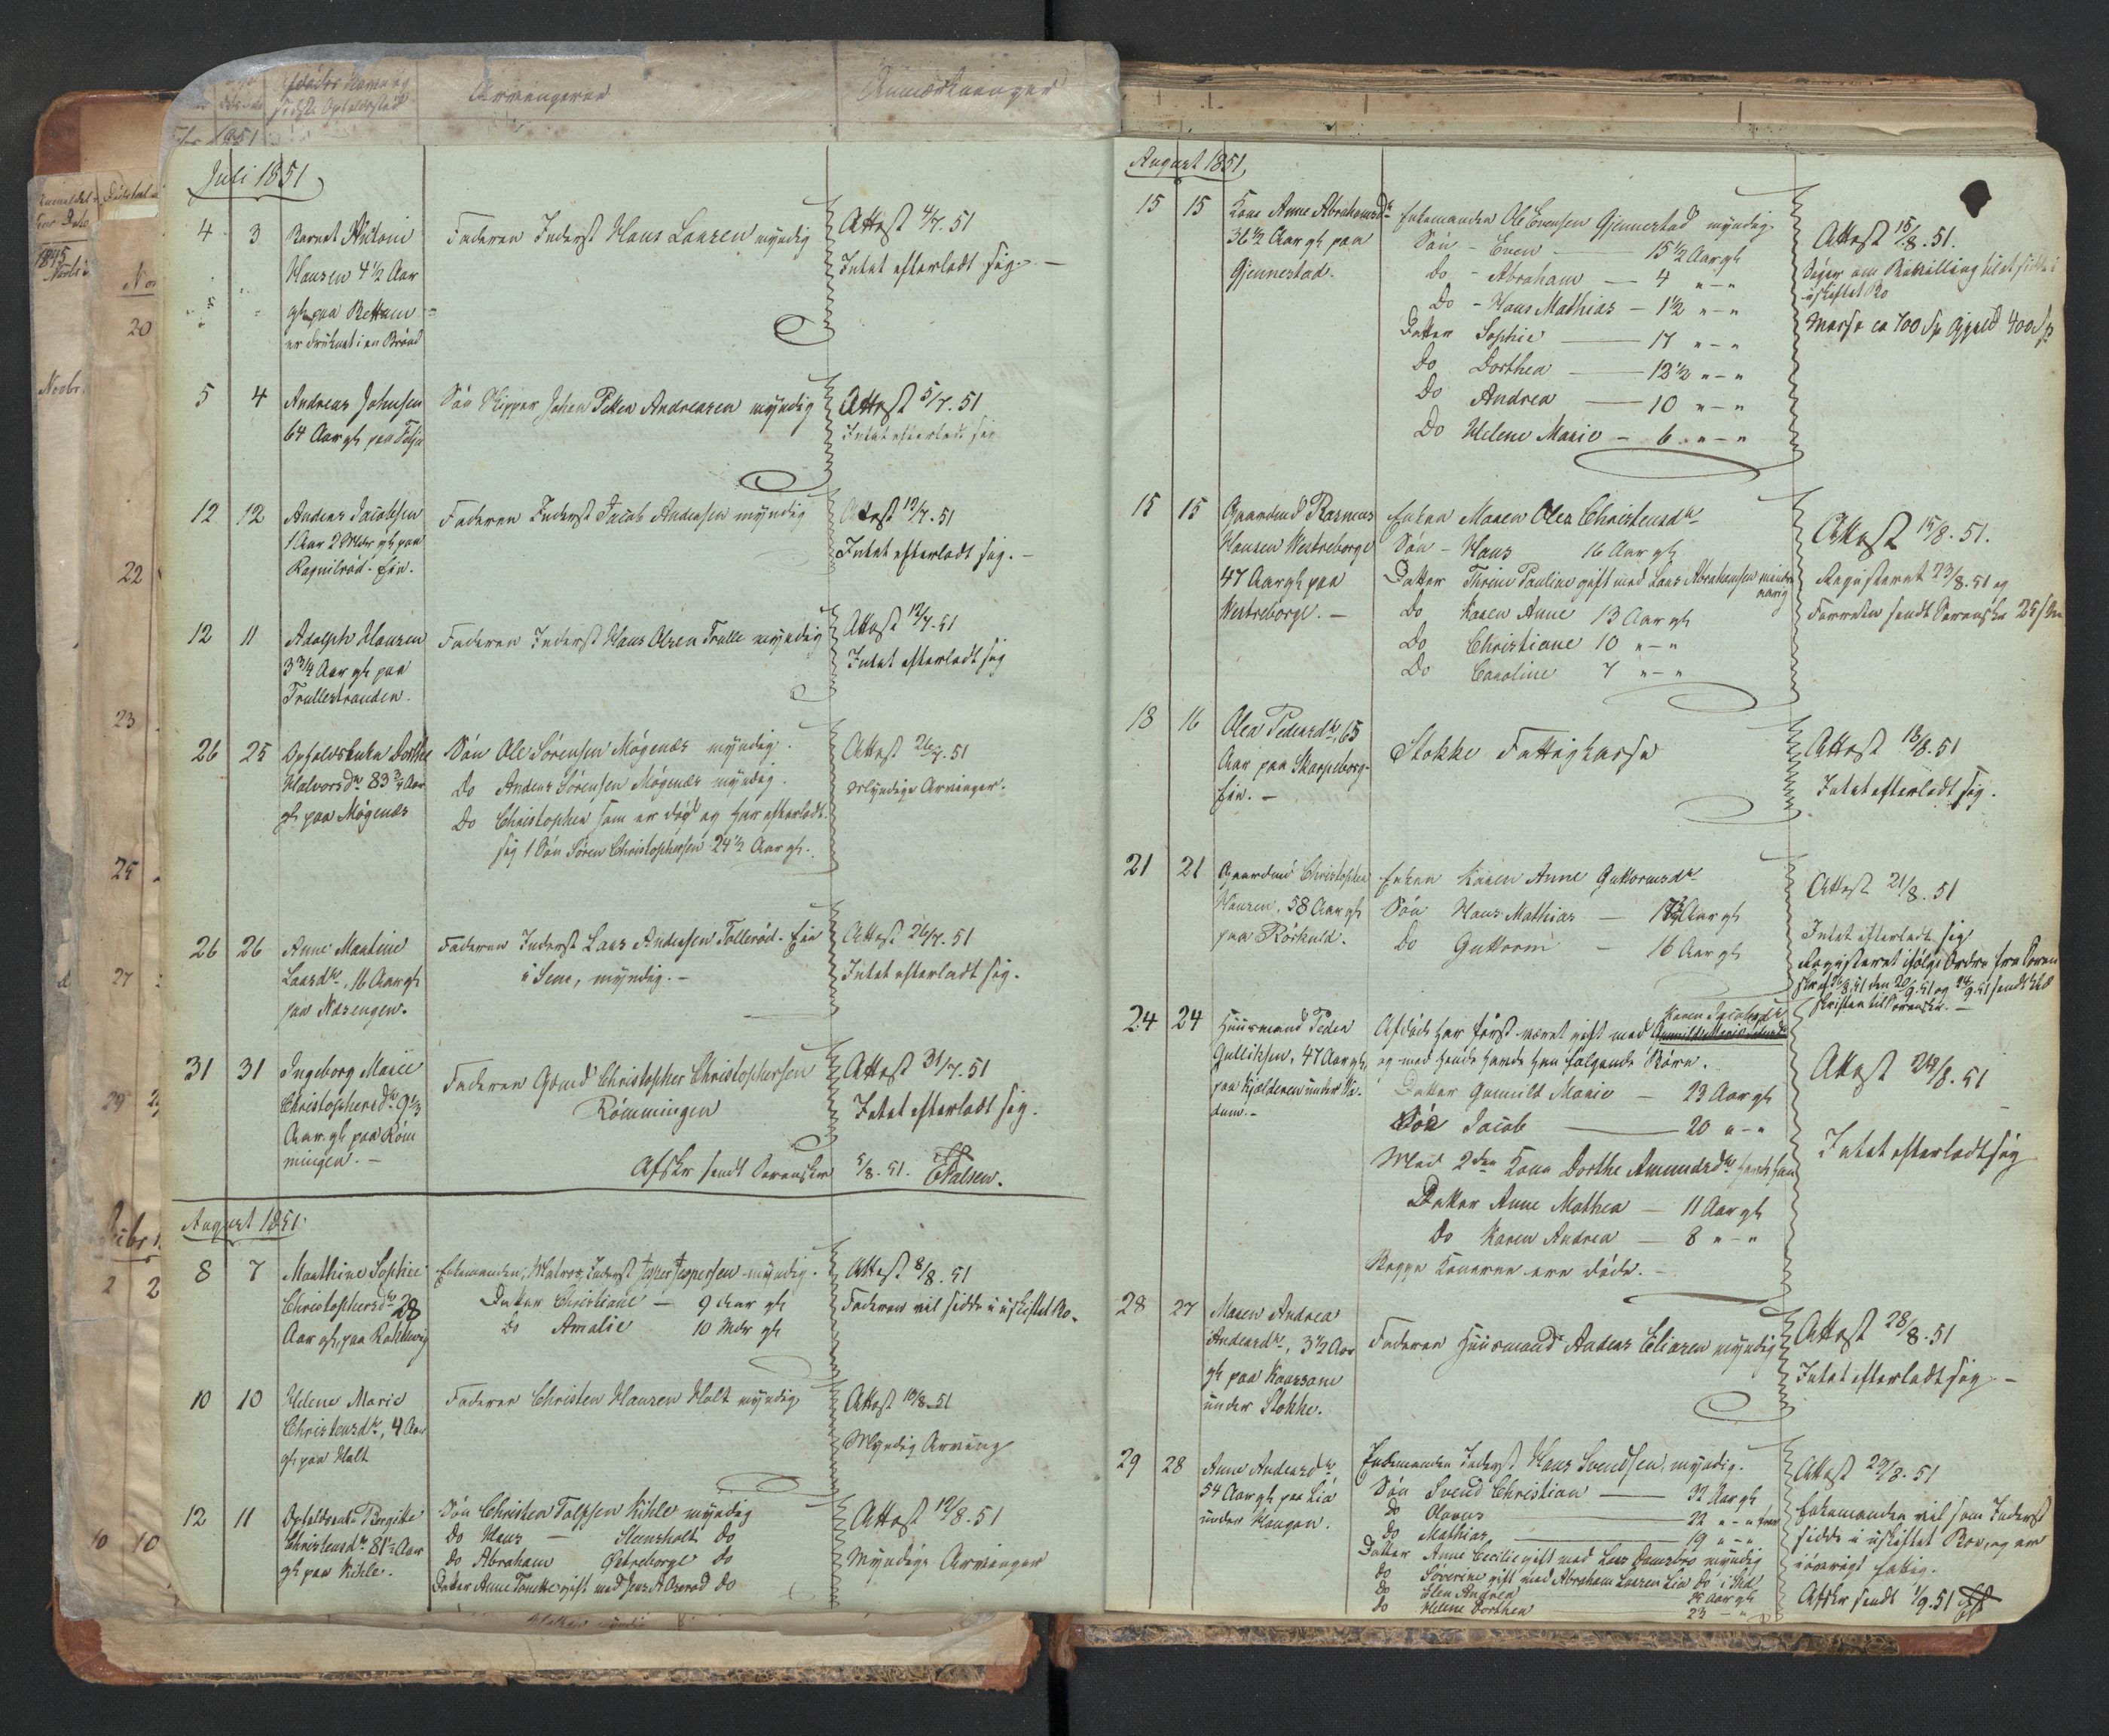 Afdødes Navn og
sidste Opholdssted
Arvingerne
Anmærkninger
Juli 1851
4 3 Barnet Antoni Faderen Inderst Hans Larsen myndig Attest 4/7. 51
Hansen 4 1/2 Aar Intet efterladt sig. —
gl. paa
er druknet i en Brønd
5 4 Andreas Johnsen Søn Skipper Johan Petter Andreasen myndig Attest 5/7. 51
64 Aar gl. paa Intet efterladt sig
12 12 Anders Jacobsen Faderen Inderst Jacob Andersen myndig Attest 12/7. 51
1 Aar 2 Mdr gl. paa Intet efterladt sig. —
Ragnilrød. Eie.
12 11 Adolph Hansen Faderen Inderst Hans Olsen Trulle myndig Attest 12/7. 51
3 3/4 Aar gl. paa Intet efterladt sig
Trullestranden.
26 25 Opholdsenken Dorthe Søn Ole Sørensen Møgenæs myndig. Attest 26/7. 51
Halvorsdr 83 3/4 Aar Do Anders Sørensen Møgenæs myndig. Myndige Arvinger.
gl. paa Møgenæs Do Christopher som er død og har efterladt
sig 1 Søn Søren Christophersen 24 1/2 Aar gl.
26 26 Anne Martine Faderen Inderst Lars Andersen Tollerød. Eie Attest 26/7. 51
Larsdr, 16 Aar gl. i Sem, myndig. — Intet efterladt sig.
paa Næsengen.
31 31 Ingeborg Marie Faderen Gmd Christopher Christophersen Attest 31/7. 51
Christophersdr 9 1/3 Rømmingen Intet efterladt sig.
Aar. gl. paa Røm
mingen. — Afskr sendt Sorenskr 5/8. 51.
August 1851.
8 7 Marthine Sophie Enkemanden, Matros, Inderst Jesper Jespersen myndig. Attest 8/8. 51
Christophersdr 28 Datter Christiane — 9 Aar gl. Faderen vil sidde i uskiftet Bo.
Aar gl. paa Do Amalie 10 Mdr gl.
10 10 Helene Marie Faderen Christen Hansen Holt myndig Attest 10/8. 51
Christensdr, 4 Aar Myndig Arving
gl. paa Holt
12 11 Opholdsenke Birgitte Søn Christen Tolfsen Kihle myndig Attest 12/8. 51
Christensdr 81 1/2 Aar Do Hans — Steensholt Do
gl. paa Kihle. Do Abraham Østreborge Do Myndige Arvinger
Datter Anne Tonette gift med Jens A Oserød Do
August 1851,
15 15 Kone Anne Abrahamsdr Enkemanden Ole Evensen Gjennestad myndig Attest 15/8. 51.
36 1/2 Aar gl. paa Søn - Even — 15 1/2 Aar gl.
Gjennestad. Do - Abraham — 4 " — " Søger om Bevilling til at sidde i
Do - Hans Mathias — 1 1/2 " — " uskiftet Bo
Datter Sophie — 17 " — " Masse ca 700 Sp Gjæld 400 Sp
Do Dorthea — 12 1/2 " — "
Do Andrea — 10 " — "
Do Helene Marie — 6 " — "
15 15 Gaardmd Rasmus Enken Maren Olea Christensdr Attest 15/8. 51.
Hansen Westreborge Søn - Hans 16 Aar gl.
47 Aar gl. paa Datter Thrine Pauline gift med Lars Abrahamsen mindre Registeret 23/8. 51 og
aarig
Westreborge. — Do Karen Anne 13 Aar gl. sendt Sorenskr 25/
Do Christiane 10 " — "
Do Caroline 7 " — "
18 16 Olea Pedersdr, 65 Stokke Fattigkasse Attest 18/8. 51
Aar paa Skarpeborg- Intet efterladt sig.
Eie. —
21 21 Gaardmd Christopher Enken Karen Anne Guttormsdr Attest 21/8. 51
Hansen, 58 Aar gl. Søn Hans Mathias — Aar gl.
paa Rørkuld. Do Guttorm — 16 Aar gl. Intet efterladt sig
Registeret ifølge Ordre fra Soren
24 24 Huusmand Peder Afdøde har først været gift med Karen Jacobsdr
Gulliksen, 47 Aar gl. og med hende havde han følgende Børn. Attest 24/8. 51
paa Kjælderen under Va-
dum. — Datter Gunnild Marie — 23 Aar gl.
Søn Jacob — 20 " — "
Med 2den Kone Dorthe Amundsdr havde han Intet efterladt sig
Datter Anne Mathea — 11 Aar gl.
Do Karen Andrea — 8 " — "
Begge Konerne ere døde. —
28 27 Maren Andrea Faderen Huusmand Anders Eliasen myndig Attest 28/8. 51
Andersdr, 3 1/2 Aar Intet efterladt sig. —
gl. paa Kaarsane
under Stokke.
29 28 Anne Andersdr Enkemanden Inderst Hans Svendsen, myndig. Attest 29/8. 51
54 Aar gl. paa Lia Søn Svend Christian — 32 Aar gl. Enkemanden vil som Inderst
under Haugan. Do Olavus — 22 " — " sidde i uskiftet Boe, og er
Do Mathias — 19 " — " iøvrigt fattig.
Datter Anne Cecilie gift med Lars myndig
Do Severine gift med Abraham Larsen Lia Do i
Do Elen Andrea Aar gl. Afskr sendt 1/9. 51
Do Helene Dorthea 23 — "